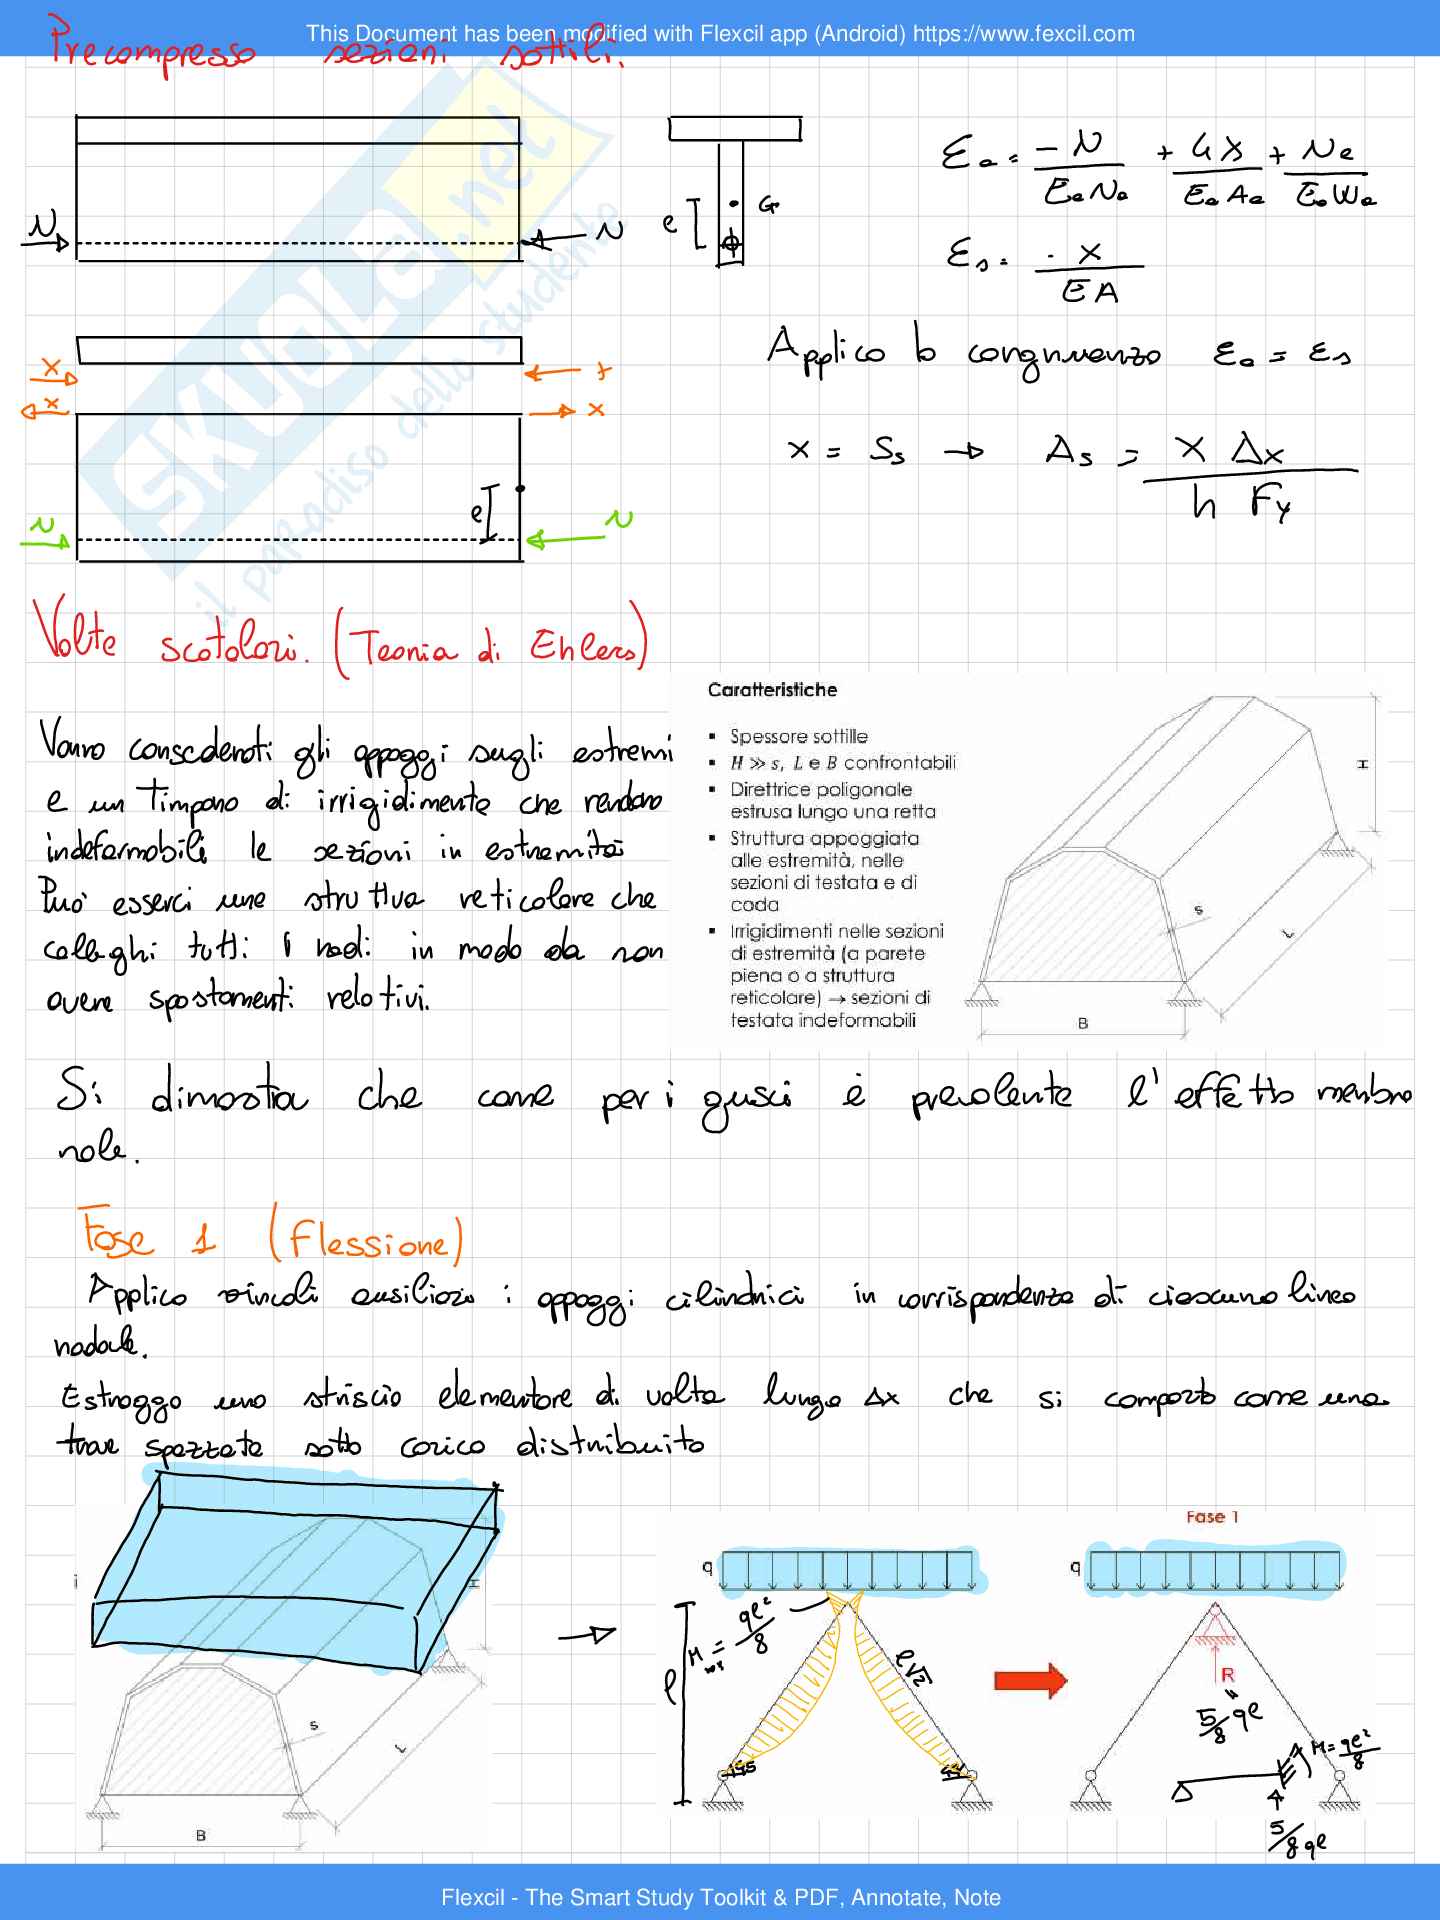 This Document has been modified with Flexcil app (Android) https://www.fexcil.com
Precompresso sezioni sottili.
SKUOLA.net
il paradiso dello studente
N
N
e
G
εa = -N/EaNa + 4X/EaAa + Ne/EaWa
εs = -X/EA
Applico la congruenza εa = εs
X = Ss → As = X Δx / h Fy
X
X
X
X
e
N
N
Volte scatolari. (Teoria di Ehlers)
Vanno considerati gli appoggi sugli estremi
e un Timpano di irrigidimento che rendano
indeformabili le sezioni in estremità
Può esserci una struttura reticolare che
colleghi tutti i nodi in modo da non
avere spostamenti relativi.
Caratteristiche
▪ Spessore sottille
▪ H ≫ s, L e B confrontabili
▪ Direttrice poligonale
estrusa lungo una retta
▪ Struttura appoggiata
alle estremità, nelle
sezioni di testata e di
coda
▪ Irrigidimenti nelle sezioni
di estremità (a parete
piena o a struttura
reticolare) → sezioni di
testata indeformabili
H
s
L
B
Si dimostra che come per i gusci è prevalente l'effetto membra
nale.
Fase 1 (Flessione)
Applico vincoli ausiliari: appoggi cilindrici in corrispondenza di ciascuna linea
nodale.
Estraggo una striscia elementare di volta lunga Δx che si comporta come una
trave spezzata sotto carico distribuito
H
s
L
B
q
M = ql²/8
l
l√2
Fase 1
q
R
5/8 ql
M = ql²/8
5/8 ql
Flexcil - The Smart Study Toolkit & PDF, Annotate, Note